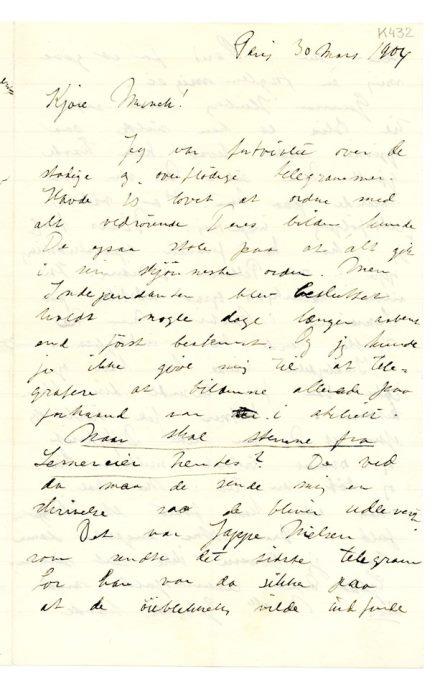 K432
Paris 30 Mars 1904
Kjære Munch!
Jeg var fortvivlet over de
stadige og overflødige telegrammer.
Havde lovet at ordne med
alt vedrørende Deres billeder kunde
De ogsaa stole paa at alt gik
i sin skjønneste orden. Men
Indépendanten blev besluttet
holdt nogle dage længer aabent
end først bestemt. Og jeg kunde
jo ikke give mig til at tele=
grafere at billederne allerede paa
forhaand var i
Naar skal stenene fra
Lemercier hentes? De ved
da maa de sende mig en
skrivelse saa de bliver udleveret
Det var Jappe Nilssen
som sendte det sidste telegram
for han var da sikker paa
at de vilde indfinde